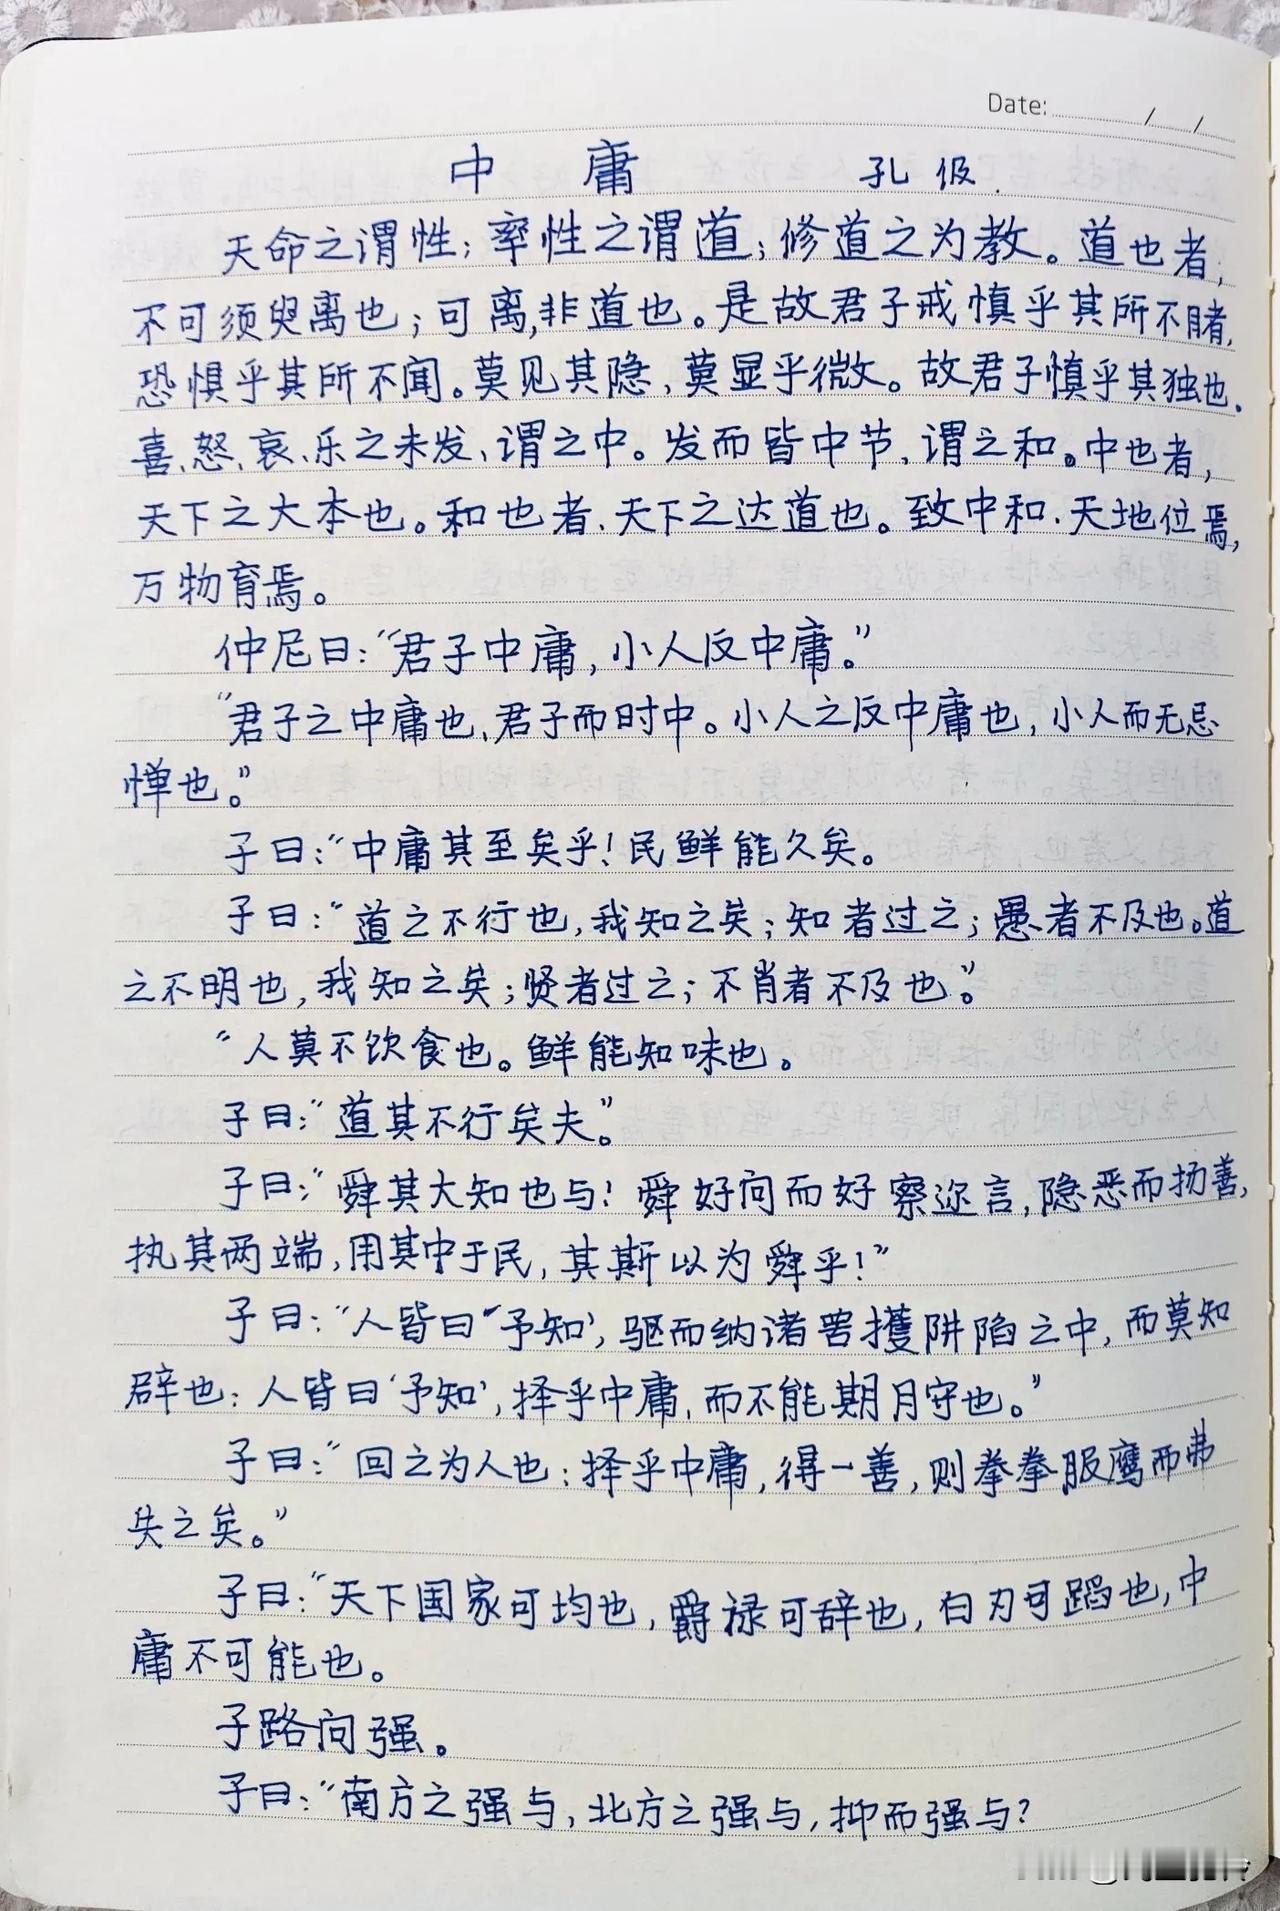 Date: / /
中 庸 孔伋.
天命之谓性；率性之谓道；修道之为教。道也者，
不可须臾离也；可离，非道也。是故君子戒慎乎其所不睹，
恐惧乎其所不闻。莫见其隐，莫显乎微。故君子慎乎其独也。
喜、怒、哀、乐之未发、谓之中。发而皆中节，谓之和。中也者，
天下之大本也。和也者、天下之达道也。致中和、天地位焉，
万物育焉。
仲尼曰：“君子中庸，小人反中庸。”
“君子之中庸也、君子而时中。小人之反中庸也，小人而无忌
惮也。”
子曰：“中庸其至矣乎！民鲜能久矣。
子曰：“道之不行也，我知之矣；知者过之；愚者不及也。道
之不明也，我知之矣；贤者过之；不肖者不及也。”
“人莫不饮食也。鲜能知味也。
子曰：“道其不行矣夫。”
子曰：“舜其大知也与！舜好问而好察迩言，隐恶而扬善，
执其两端，用其中于民，其斯以为舜乎！”
子曰：“人皆曰“予知’，驱而纳诸罟擭阱陷之中，而莫知
辟也：人皆曰‘予知’，择乎中庸，而不能期月守也。”
子曰：“回之为人也：择乎中庸，得一善，则拳拳服鹰而弗
失之矣。”
子曰：“天下国家可均也，爵禄可辞也，白刃可蹈也，中
庸不可能也。
子路问强。
子曰：“南方之强与，北方之强与，抑而强与？